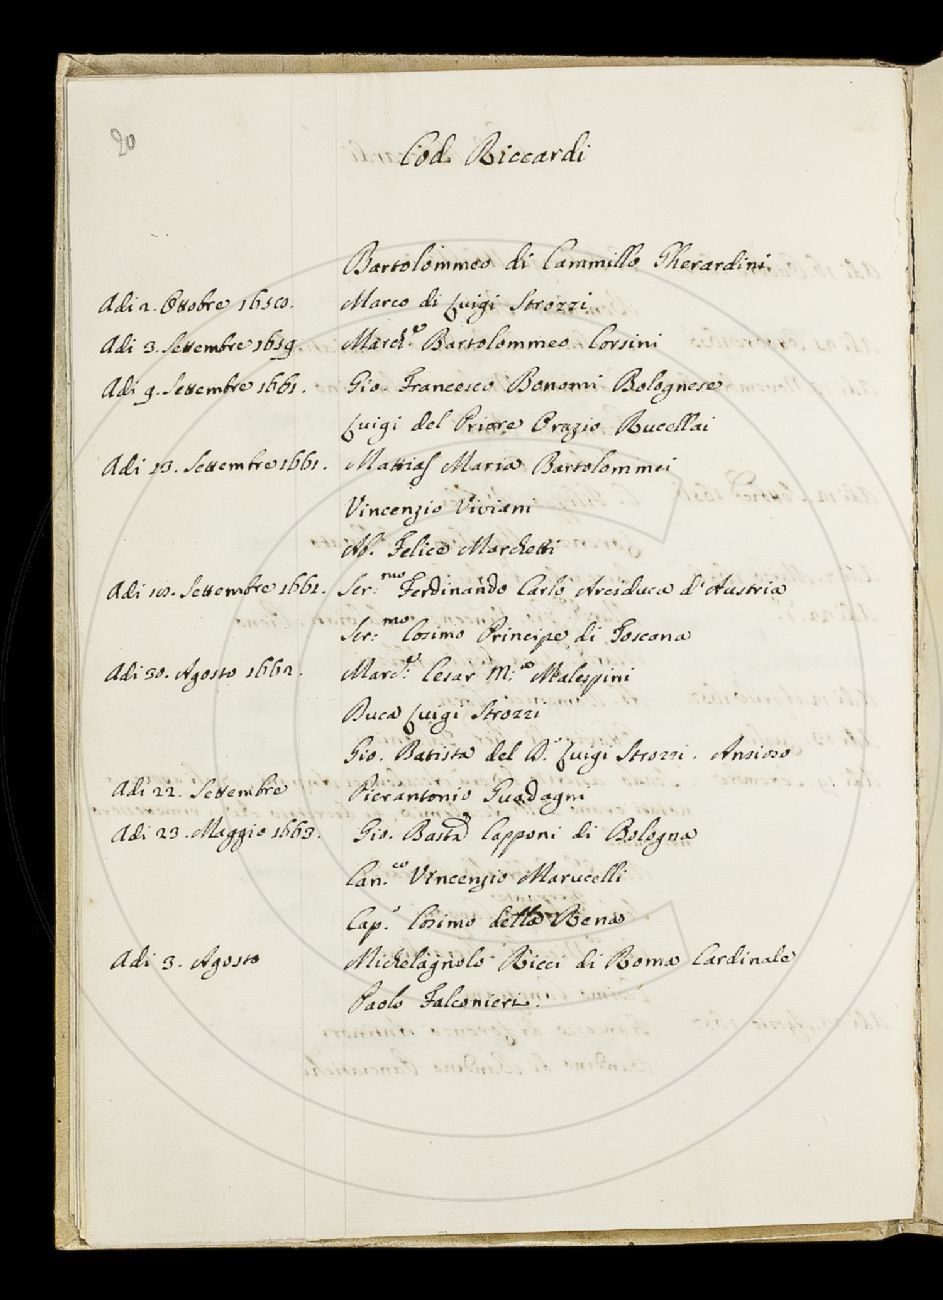 20
Cod. Riccardi
Bartolommeo di Cammillo Gherardini
Adi 2. Ottobre 1650. Marco di Luigi Strozzi
Adi 3. Settembre 1659. March.e Bartolommeo Corsini
Adi 9. Settembre 1661. Gio. Francesco Bonomi Bolognese
Luigi del Priore Orazio Rucellai
Adi 13. Settembre 1661. Mattias Maria Bartolommei
Vincenzio Viviani
Ab. Felice Marchetti
Adi 10. Settembre 1661. Ser:mo Ferdinando Carlo Arciduca d'Austria
Ser:mo Cosimo Principe di Toscana
Adi 30. Agosto 1662. Marc.e Cesar M:a Malespini
Duca Luigi Strozzi
Gio. Batista del D. Luigi Strozzi. Ansioso
Adi 22. Settembre Pierantonio Guadagni
Adi 23. Maggio 1663. Gio. Basta Capponi di Bologna
Can.co Vincenzio Marucelli
Cap. Cosimo della Rena
Adi 3. Agosto Michelagnolo Ricci di Roma Cardinale
Paolo Falconieri.